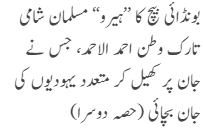 بونڈائی بیچ کا ”ہیرو“ مسلمان شامی
تارک وطن احمد الاحمد، جس نے
جان پر کھیل کر متعدد یہودیوں کی
جان بچائی (حصہ دوسرا)